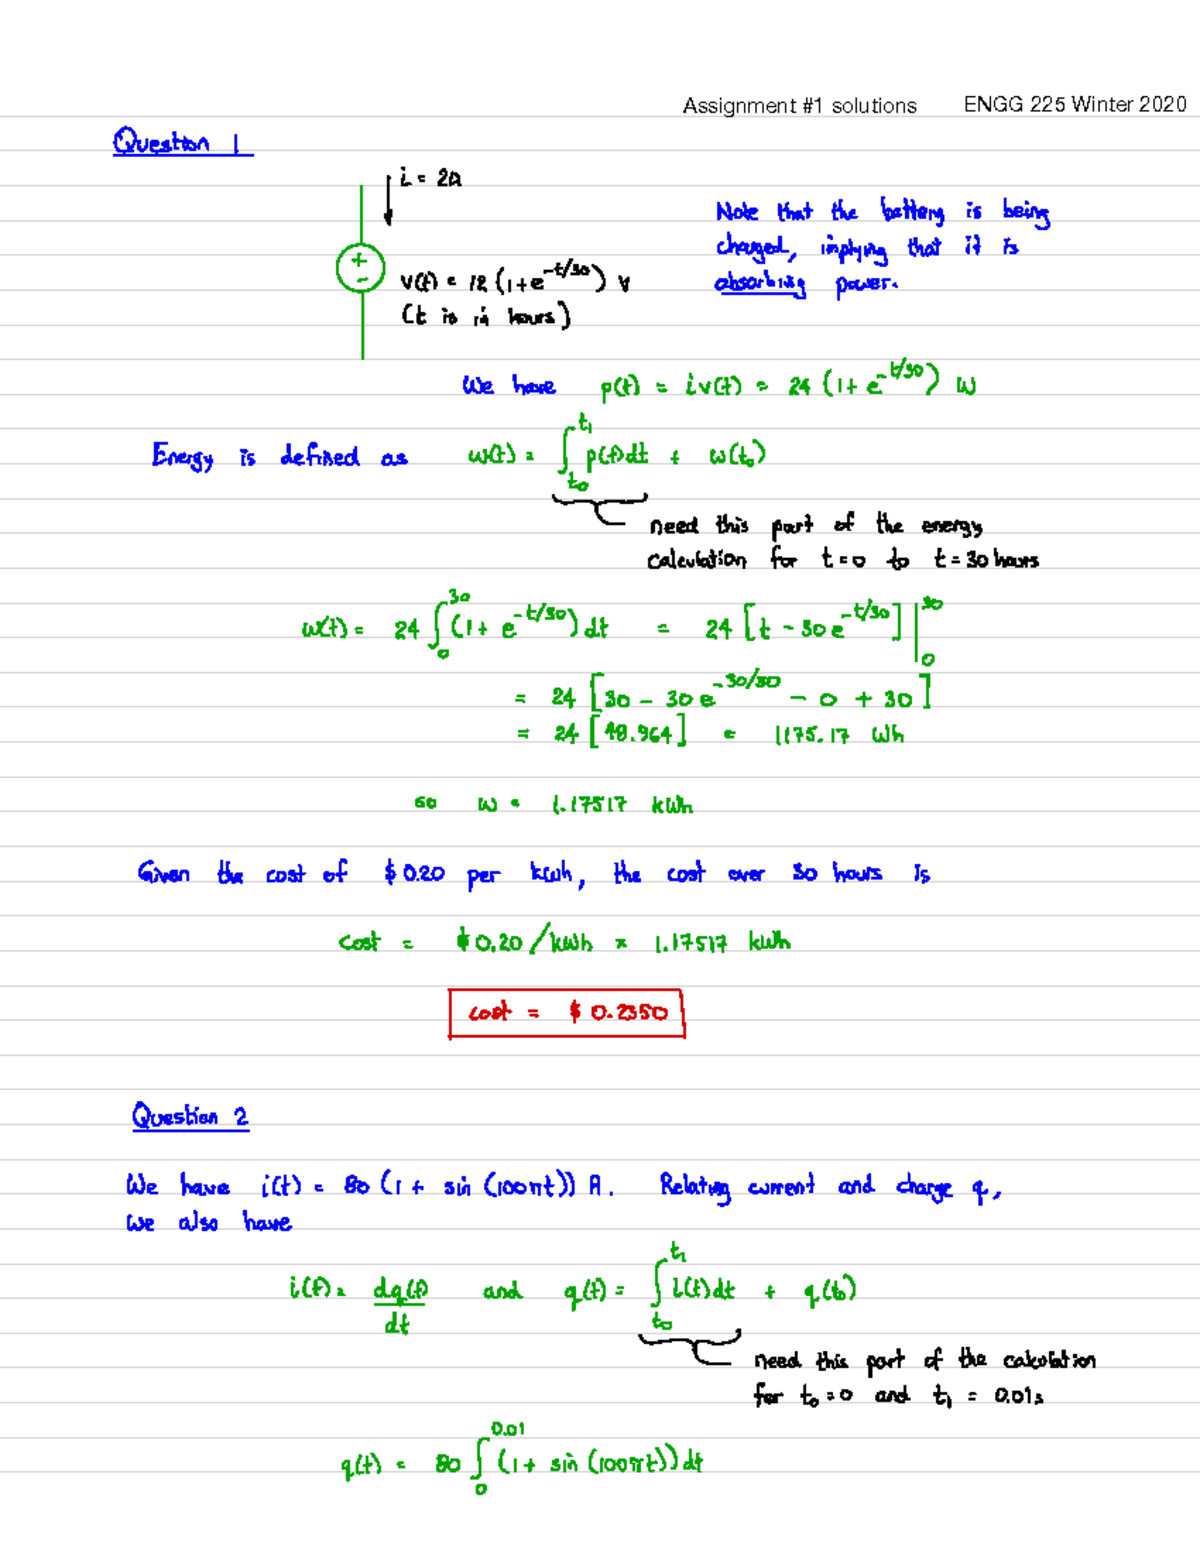 Assignment #1 solutions ENGG 225 Winter 2020
Question 1
i = 2A
Note that the battery is being
charged, implying that it is
absorbing power.
+
-
v(t) = 12 (1+e^{-t/30}) V
(t is in hours)
We have p(t) = iv(t) = 24 (1+ e^{-t/30}) W
Energy is defined as w(t) = ∫_{t₀}^{t₁} p(t)dt + w(t₀)
need this part of the energy
calculation for t=0 to t=30 hours
w(t) = 24 ∫_0^{30} (1+ e^{-t/30}) dt = 24 [t - 30e^{-t/30}] |_0^{30}
= 24 [30 - 30e^{-30/30} - 0 + 30]
= 24 [48.964] = 1175.17 Wh
so w = 1.17517 kWh
Given the cost of $0.20 per kWh, the cost over 30 hours is
cost = $0.20/kWh × 1.17517 kWh
cost = $0.2350
Question 2
We have i(t) = 80 (1 + sin (100πt)) A. Relating current and charge q,
we also have
i(t) = dq(t)/dt and q(t) = ∫_{t₀}^{t₁} i(t)dt + q(t₀)
need this part of the calculation
for t₀=0 and t₁ = 0.01s
q(t) = 80 ∫_0^{0.01} (1+ sin (100πt)) dt